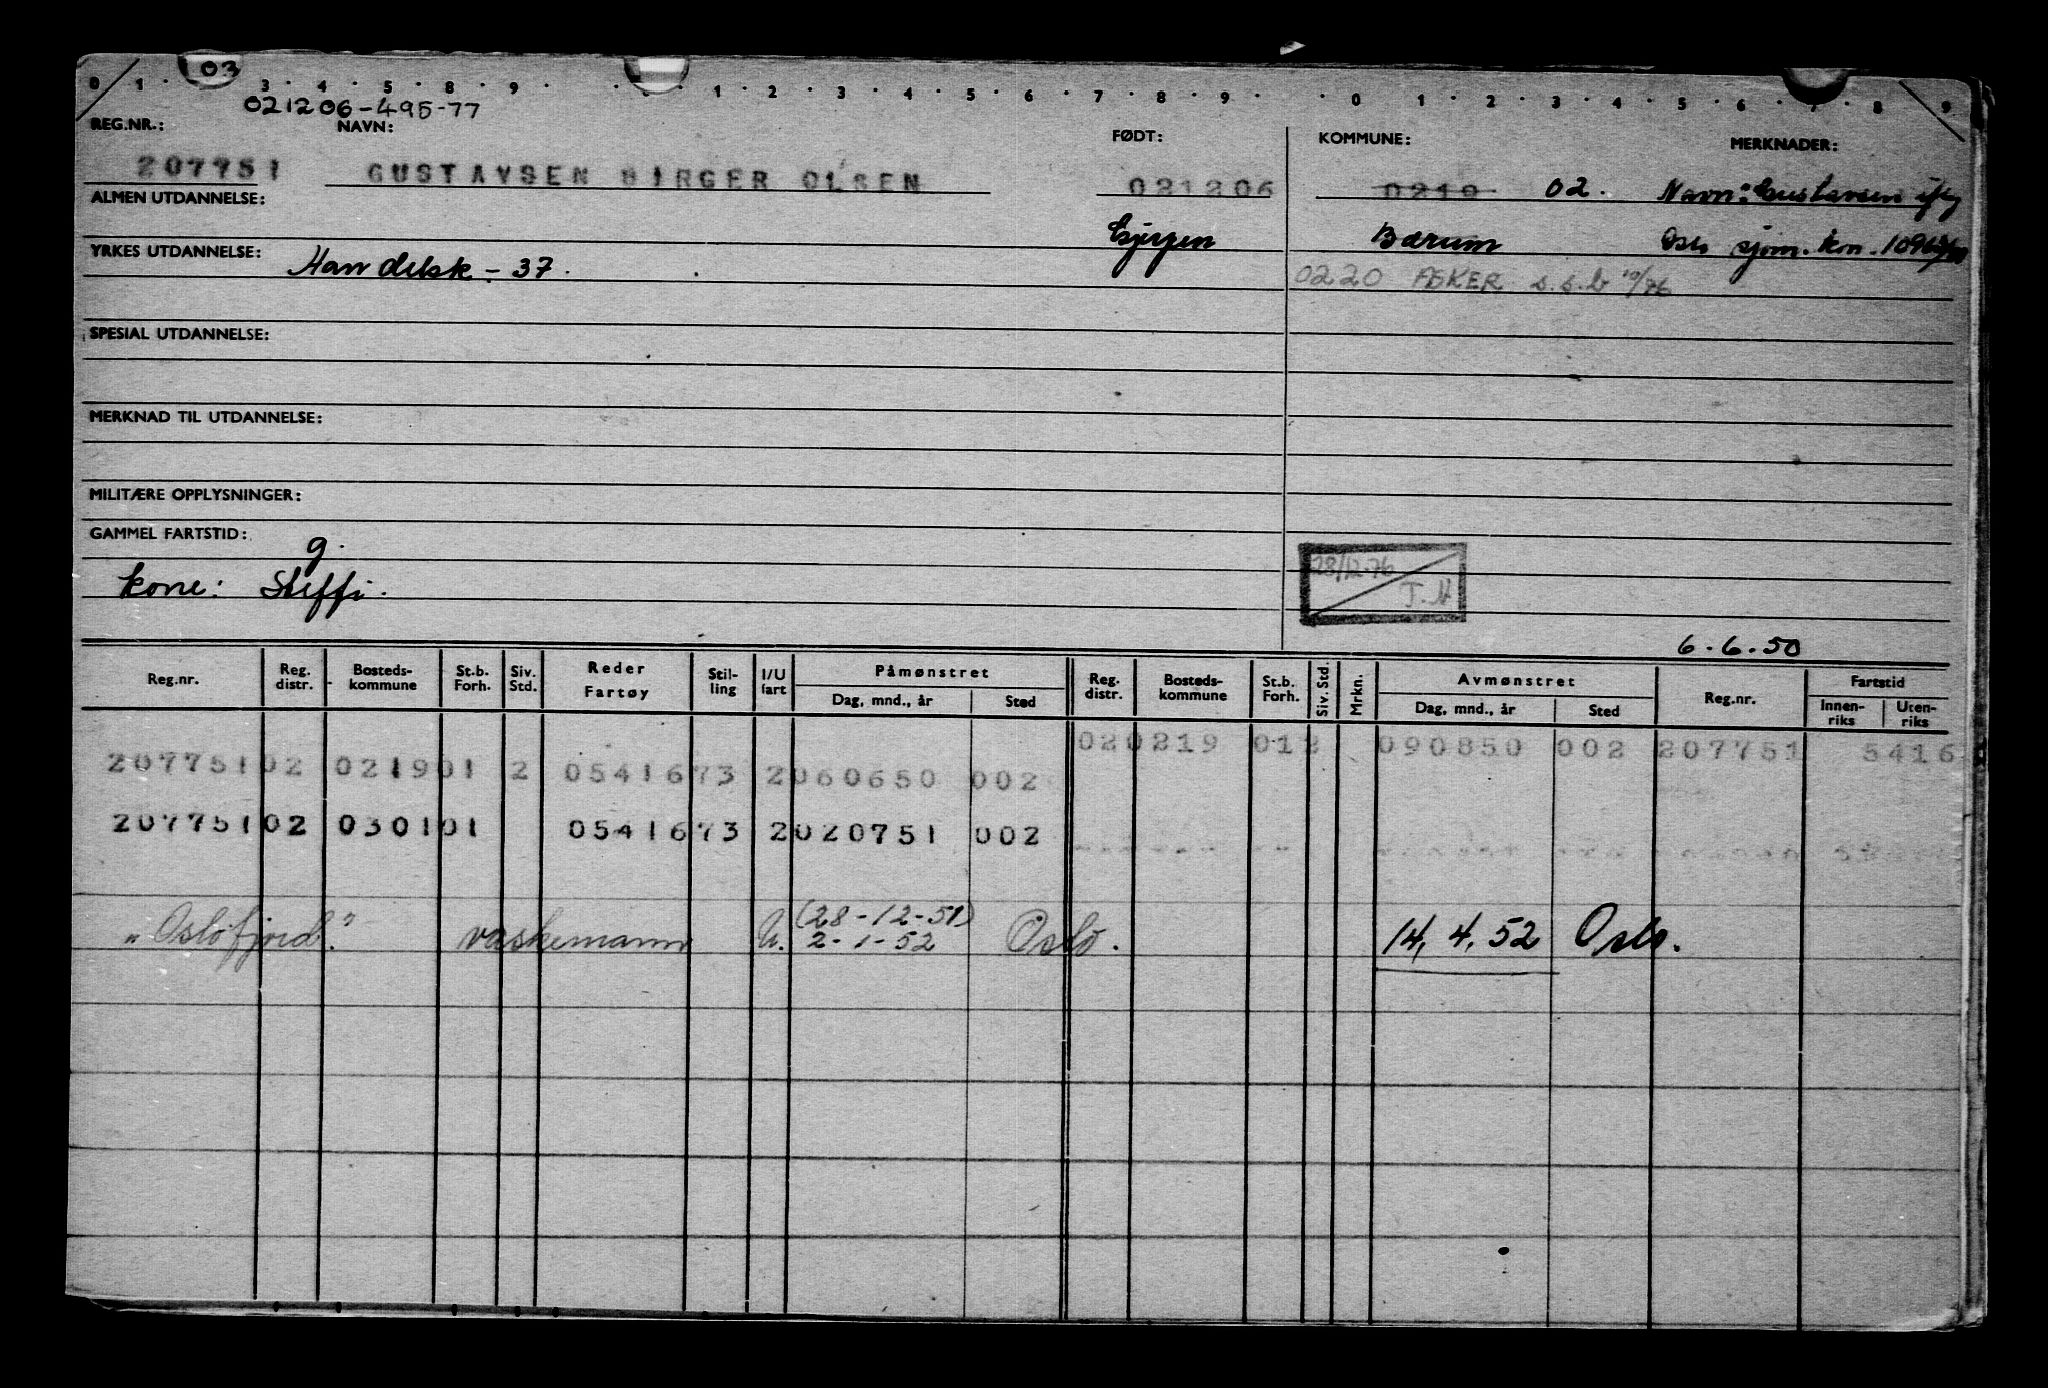 03
0 1 3 4 5 8 9 1 2 3 4 5 6 7 8 9 0 1 2 3 4 5 6 7 8 9
021206-495-77
REG.NR.: NAVN: FØDT: KOMMUNE: MERKNADER:
207751 GUSTAVSEN BIRGER OLSEN 021206 0219 02. Navn: Gustavsen
ALMEN UTDANNELSE:
Esjergen Bærum Oslo sjøm. kn.
YRKES UTDANNELSE: Handelsk - 37.
0220 ASKER s.s.b 10/76
SPESIAL UTDANNELSE:
MERKNAD TIL UTDANNELSE:
MILITÆRE OPPLYSNINGER:
GAMMEL FARTSTID: g.
28/12-76
T.H
kone: Steffi.
6.6.50
Reg.nr. Reg. distr. Bosteds-kommune St.b. Forh. Siv. Std. Reder Fartøy Stil-ling I/U fart Påmønstret Dag, mnd., år Sted Reg. distr. Bosteds-kommune St.b. Forh. Siv. Std. Mrkn. Avmønstret Dag, mnd., år Sted Reg.nr. Fartstid Innen-riks Uten-riks
020219 012 090850 002 207751 5416
207751 02 0219 01 2 05416 73 2 060650 002
207751 02 0301 01 05416 73 2 020751 002
(28-12-51)
"Oslofjord." vaskemann U. 2-1-52 Oslo. 14,4,52 Oslo.